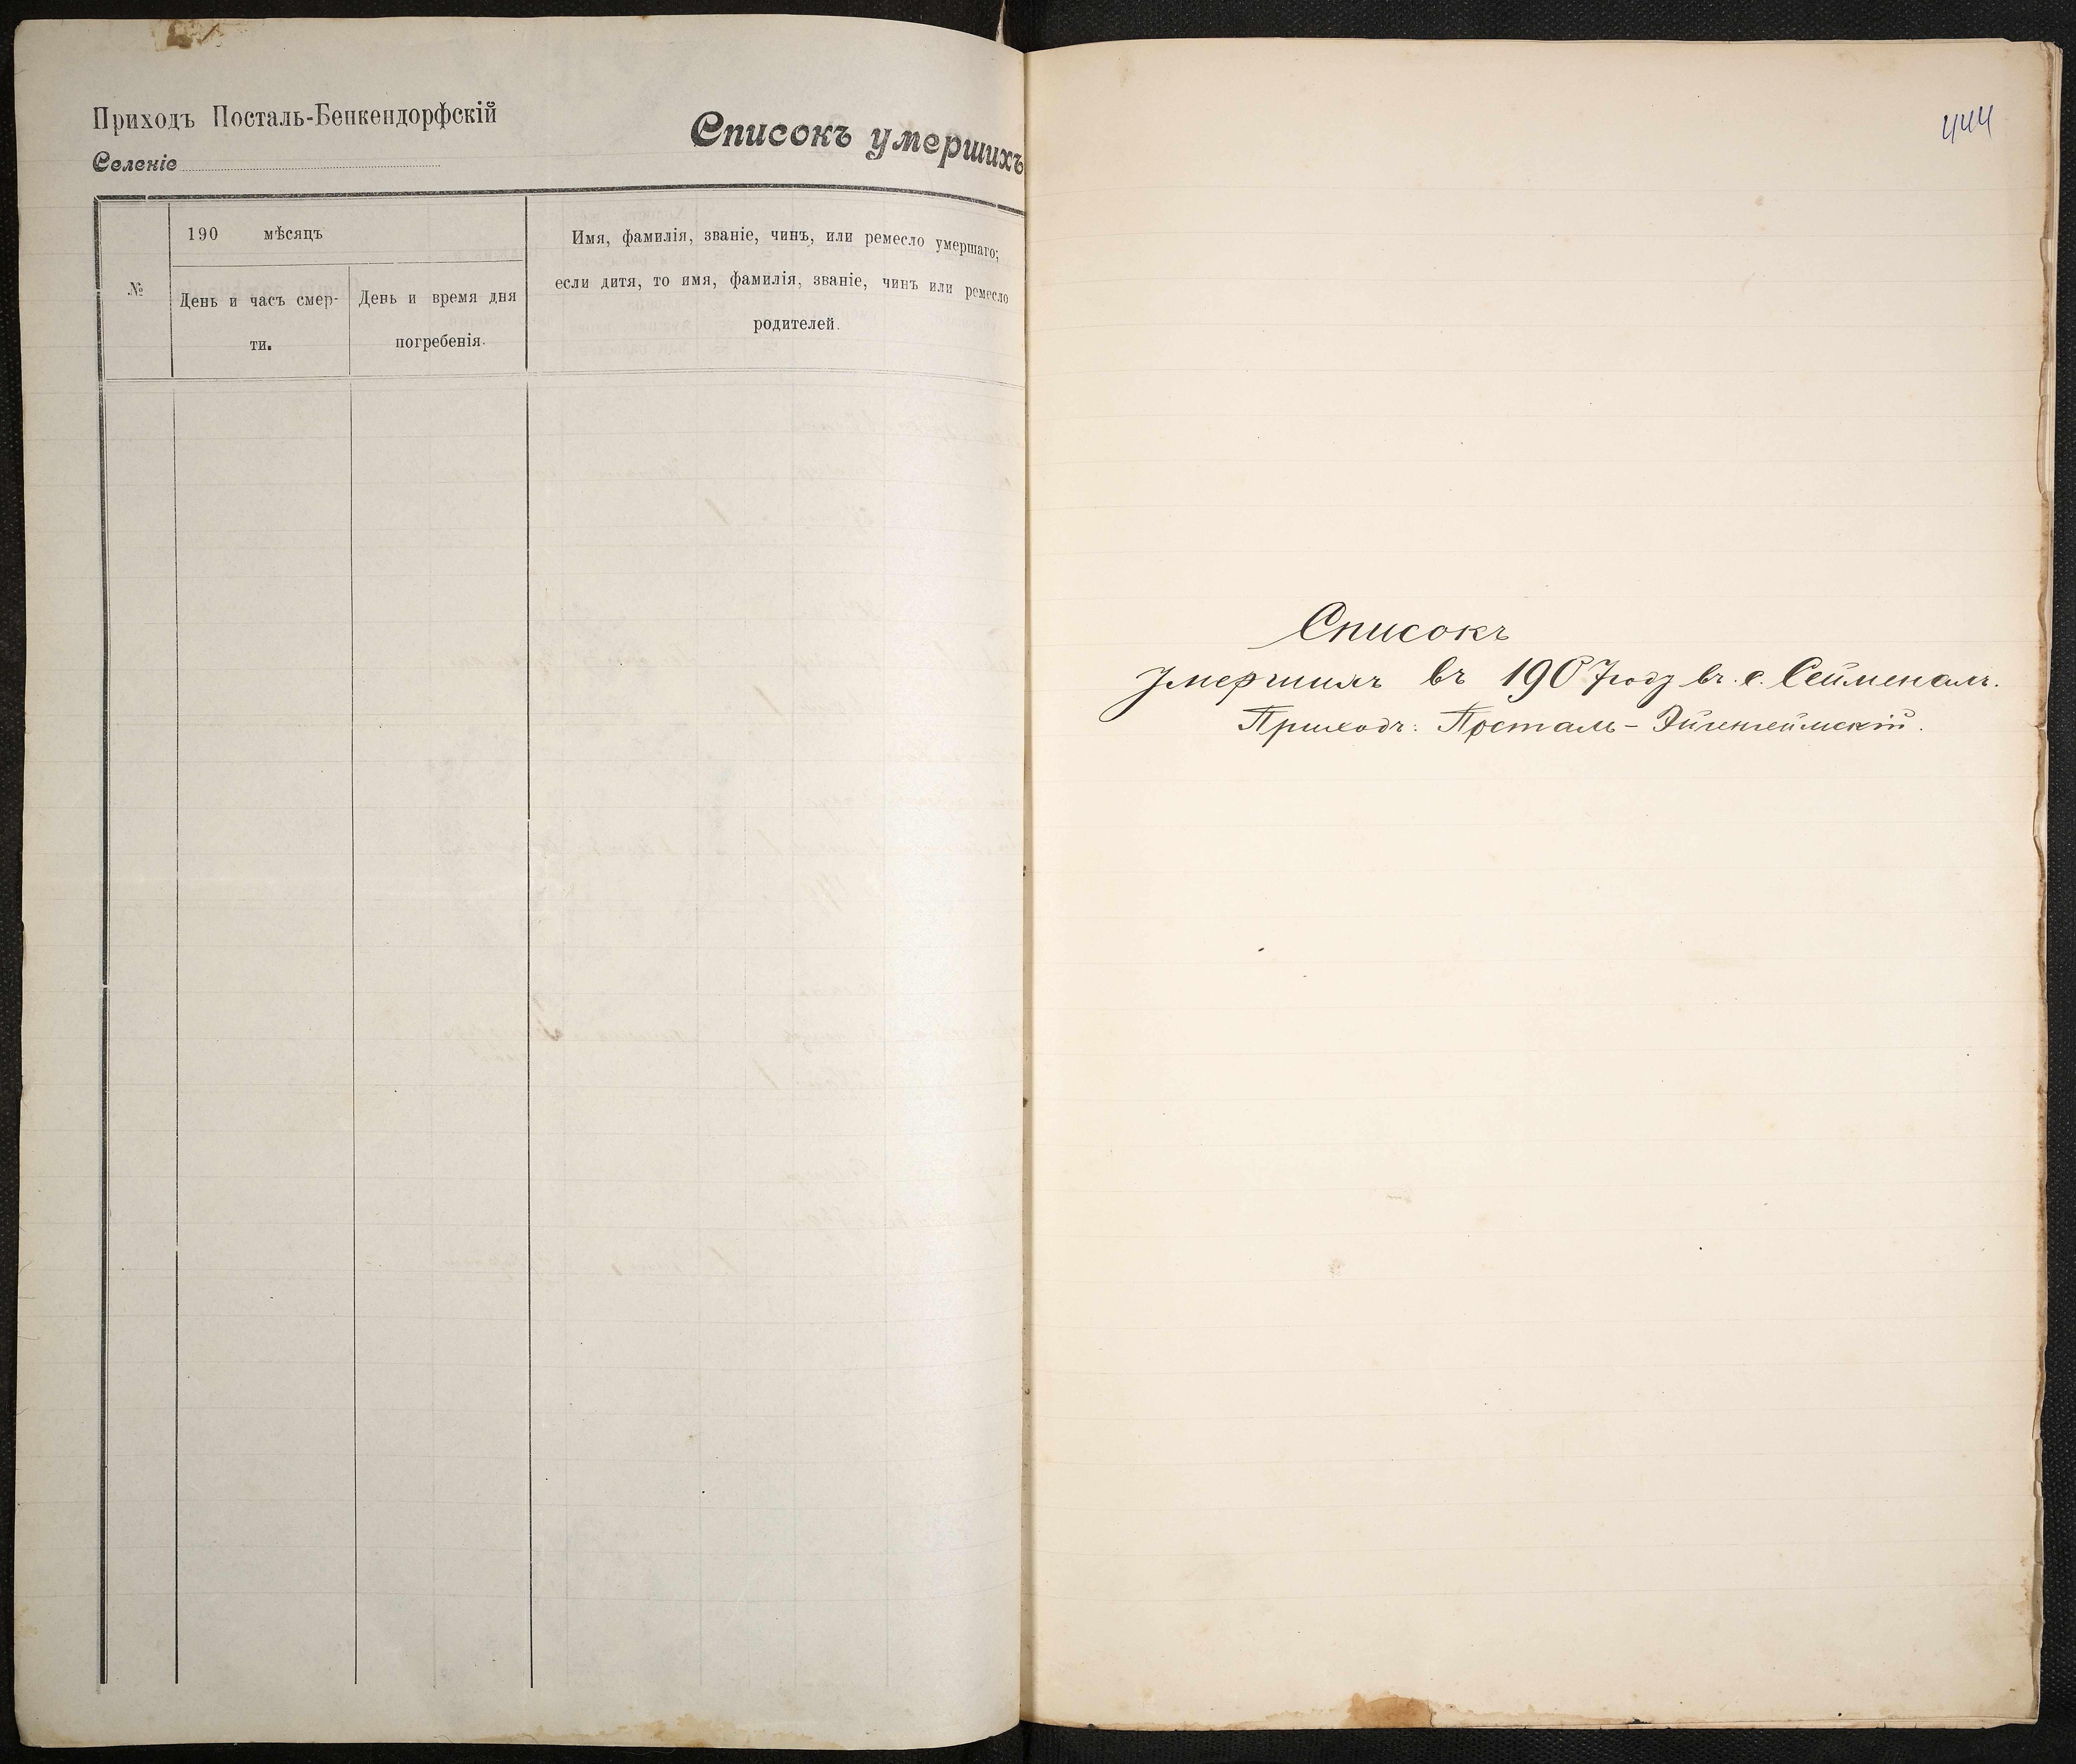 Приходъ Посталь-Бенкендорфскій
Селеніе
Списокъ умершихъ
№
190 мѣсяцъ
День и часъ смер-
ти.
День и время дня
погребенія.
Имя, фамилія, званіе, чинъ, или ремесло умершаго;
если дитя, то имя, фамилія, званіе, чинъ или ремесло
родителей.
444
Списокъ
умершихъ въ 1907 году въ с. Сейменахъ.
Приходъ: Посталь-Эйгенгеймскій.